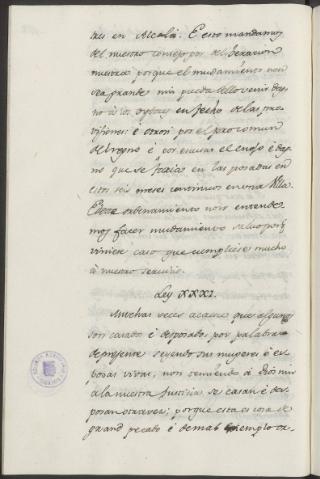 tres en Alcalá. E esto mandamos
del nuestro consejo por deliberacion
nuestra porque el mudamiento non
sea grande nin pueda dello venir dap-
no á los oydores en fecho de las pro-
visiones: é otrosí por el pro comun
del regno é por escusar el enojo é dap-
no que se facia en las posadas en
estos seis meses continuos en una Villa.
E este ordenamiento non entende-
mos facer mudamiento salvo si
viniere caso que cumpliese mucho
á nuestro servicio.
Ley XXXI.
Muchas veces acaece que algunos
son casados é desposados por palabras
de presente seyendo sus mugeres é es-
posas vivas, non temiendo á Dios nin
á la nuestra Justicia se casan é des-
posan otra vez; porque esta es cosa de
grand pecado é de mal exemplo or-